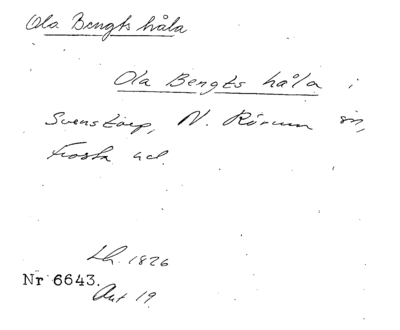 Ola Bengts håla
Ola Bengts håla i
Svenstorp, N. Rörum sn,
Frosta hd.
Lh. 1826
Nr 6643.
Akt 19.